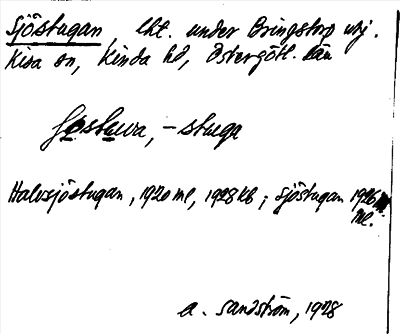 Sjöstugan, lht. under Bringstorp utj.
Kisa sn, Kinda hd, Östergötl. län
sjöstuva, -stuga
Halvsjöstugan, 1920 ml, 1928 kb; sjöstugan 1926
ml.
A. Sandström, 1928